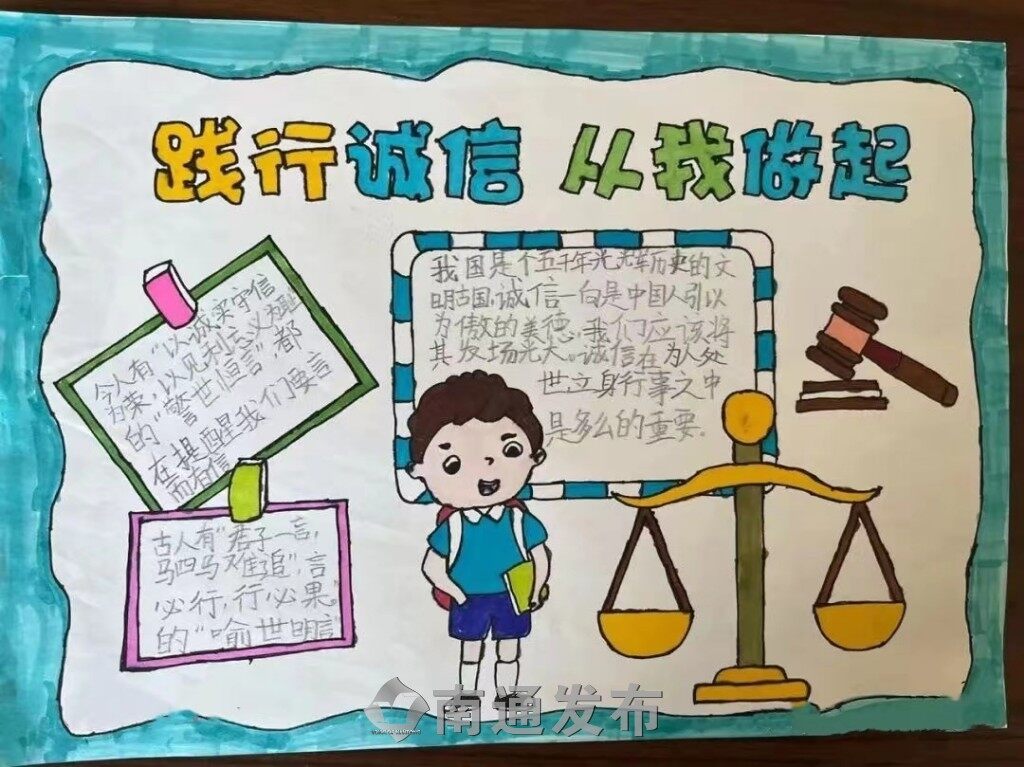 践行诚信 从我做起
我国是个五千年光辉历史的文
明古国,诚信一向是中国人引以
为傲的美德。我们应该将
其发扬光大。诚信在为人处
世立身行事之中
是多么的重要.
今人有“以诚实守信
为荣,以见利忘义为耻”
的“警世恒言”,都
在提醒我们要言
而有信
古人有“君子一言,
驷马难追”,言
必行,行必果”
的“喻世明言
南通发布